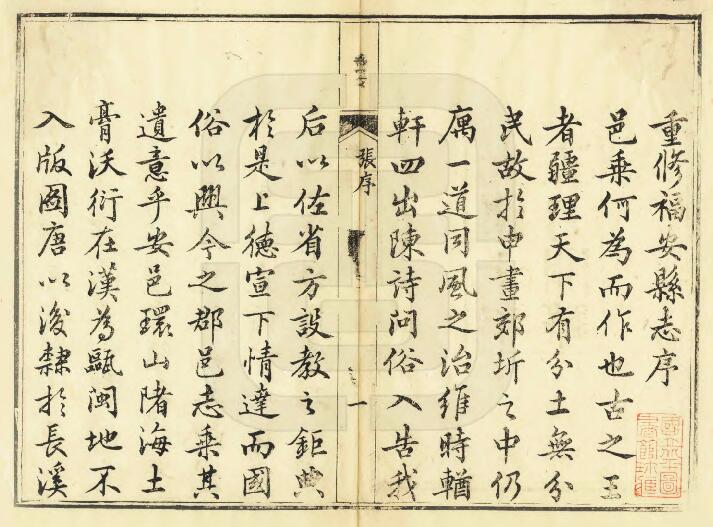 重修福安縣志序
邑乘何為而作也古之王
者疆理天下有分土無分
民故於申畫郊圻之中仍
寓一道同風之治維時輶
軒四出陳詩問俗入告我
張序
一
后以佐省方設教之鉅典
於是上德宣下情達而國
俗以興今之郡邑志乘其
遺意乎安邑環山陼海土
膏沃衍在漢為甌閩地不
入版圖唐以後隸於長溪